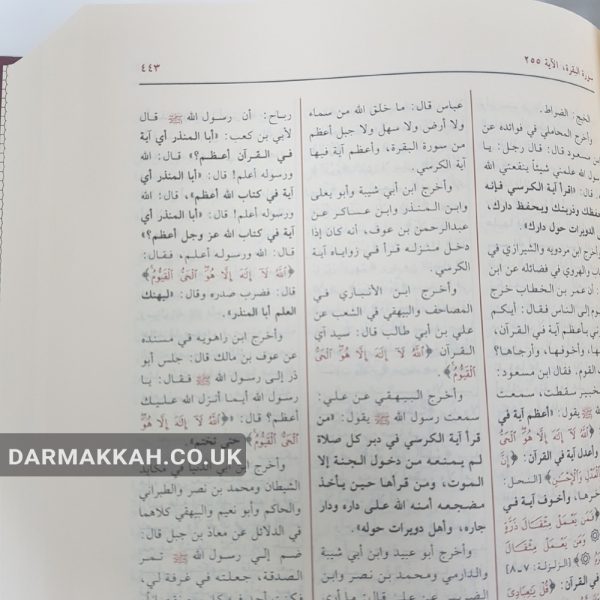 سورة البقرة، الآية ٢٥٥
٤٤٣
الخيج: الضراط.
وأخرج المحاملي في فوائده عن
مسعود قال: قال رجل: يا
الله علمني شيئاً ينفعني الله
قال: «اقرأ آية الكرسي فإنه
يحفظك وذريتك ويحفظ دارك،
الدويرات حول دارك».
وأخرج ابن مردويه والشيرازي في
والهروي في فضائله عن ابن
أن عمر بن الخطاب خرج
إلى الناس فقال: أيكم
بأعظم آية في القرآن،
وأخوفها، وأرجاها؟
القوم. فقال ابن مسعود:
الخبير سقطت، سمعت
ﷺ يقول: «أعظم آية في
﴿اللَّهُ لَا إِلَهَ إِلَّا هُوَ الْحَيُّ
وأعدل آية في القرآن: ﴿إِنَّ
بِالْعَدْلِ وَالْإِحْسَنِ﴾ [النحل:
آخرها، وأخوف آية في
﴿فَمَن يَعْمَلْ مِثْقَالَ ذَرَّةٍ
وَمَن يَعْمَلْ مِثْقَالَ
[الزلزلة: ٧ ـ ٨]
في القرآن: ﴿قُلْ يَعِبَادِيَ
عباس قال: ما خلق الله من سماء
ولا أرض ولا سهل ولا جبل أعظم
من سورة البقرة، وأعظم آية فيها
آية الكرسي.
وأخرج ابن أبي شيبة وأبو يعلى
وابن المنذر وابن عساكر عن
عبدالرحمن بن عوف، أنه كان إذا
دخل منزله قرأ في زواياه آية
الكرسي.
وأخرج ابن الأنباري في
المصاحف والبيهقي في الشعب عن
علي بن أبي طالب قال: سيد آي
القرآن ﴿اللَّهُ لَا إِلَهَ إِلَّا هُوَ الْحَيُّ
الْقَيُّومُ﴾
وأخرج البيهقي عن علي:
سمعت رسول الله ﷺ يقول: «من
قرأ آية الكرسي في دبر كل صلاة
لم يمنعه من دخول الجنة إلا
الموت، ومن قرأها حين يأخذ
مضجعه أمنه الله على داره ودار
جاره، وأهل دويرات حوله».
وأخرج أبو عبيد وابن أبي شيبة
والدارمي ومحمد بن نصر وابن
رباح: أن رسول الله ﷺ قال
لأبي بن كعب: «أبا المنذر أي آية
في القرآن أعظم؟» قال: الله
ورسوله أعلم! قال: «أبا المنذر أي
آية في كتاب الله أعظم»، قال: الله
ورسوله أعلم! قال: «أبا المنذر أي
آية في كتاب الله عز وجل أعظم؟»
قال: الله ورسوله أعلم، فقال:
﴿اللَّهُ لَا إِلَهَ إِلَّا هُوَ الْحَيُّ الْقَيُّومُ﴾
قال: فضرب صدره وقال: «ليهنك
العلم أبا المنذر».
وأخرج ابن راهويه في مسنده
عن عوف بن مالك قال: جلس أبو
ذر إلى رسول الله ﷺ فقال: يا
رسول الله أيما أنزل الله عليك
أعظم؟ قال: «﴿اللَّهُ لَا إِلَهَ إِلَّا هُوَ
الْحَيُّ الْقَيُّومُ﴾ حتى تختم».
وأخرج ابن أبي الدنيا في مكايد
الشيطان ومحمد بن نصر والطبراني
والحاكم وأبو نعيم والبيهقي كلاهما
في الدلائل عن معاذ بن جبل قال:
ضم إلي رسول الله ﷺ تمر
الصدقة، جعلته في غرفة لي،
DARMAKKAH.CO.UK